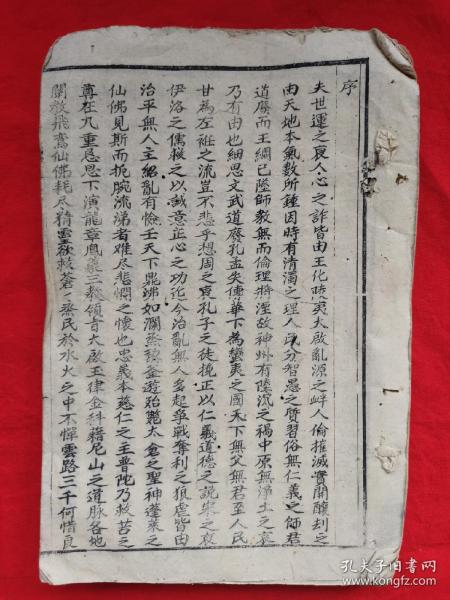 序
夫世運之衰人心之詐皆由王化陵夷大啟亂源之衅人倫摧滅實開釀刦之
由天地本氣數所鍾因時有清濁之理人民分智愚之質習俗無仁義之師君
道廢而王綱已墜師教無而倫理將湮故神州有陸沉之禍中原無淨土之哀
乃有由也細思文武道廢孔孟失傳華下為蠻夷之國天下無父無君至人民
甘為左衽之流豈不悲乎想周之衰孔子之徒挽正以仁義道德之說宋之衰
伊洛之儒拯之以誠意正心之功迄今治亂無人多起爭戰奪利之狼虐皆由
治平無人主絕亂有懷壬天下鼎沸如瀾蒸黎釜遊殆甚太倉之聖神蓬萊之
仙佛見斯而扼腕流涕者难尽悲悯之懷也忠義本慈仁之王普陀乃救苦之
尊在九重恳恩下演龍章鳳篆三教領旨大啟玉律金科藉尼山之道脉各地
開教飛鸞仙佛耗尽精靈欲救蒼々烝民於水火之中不憚雲路三千何惜良
孔夫子旧书网
book.kongfz.com